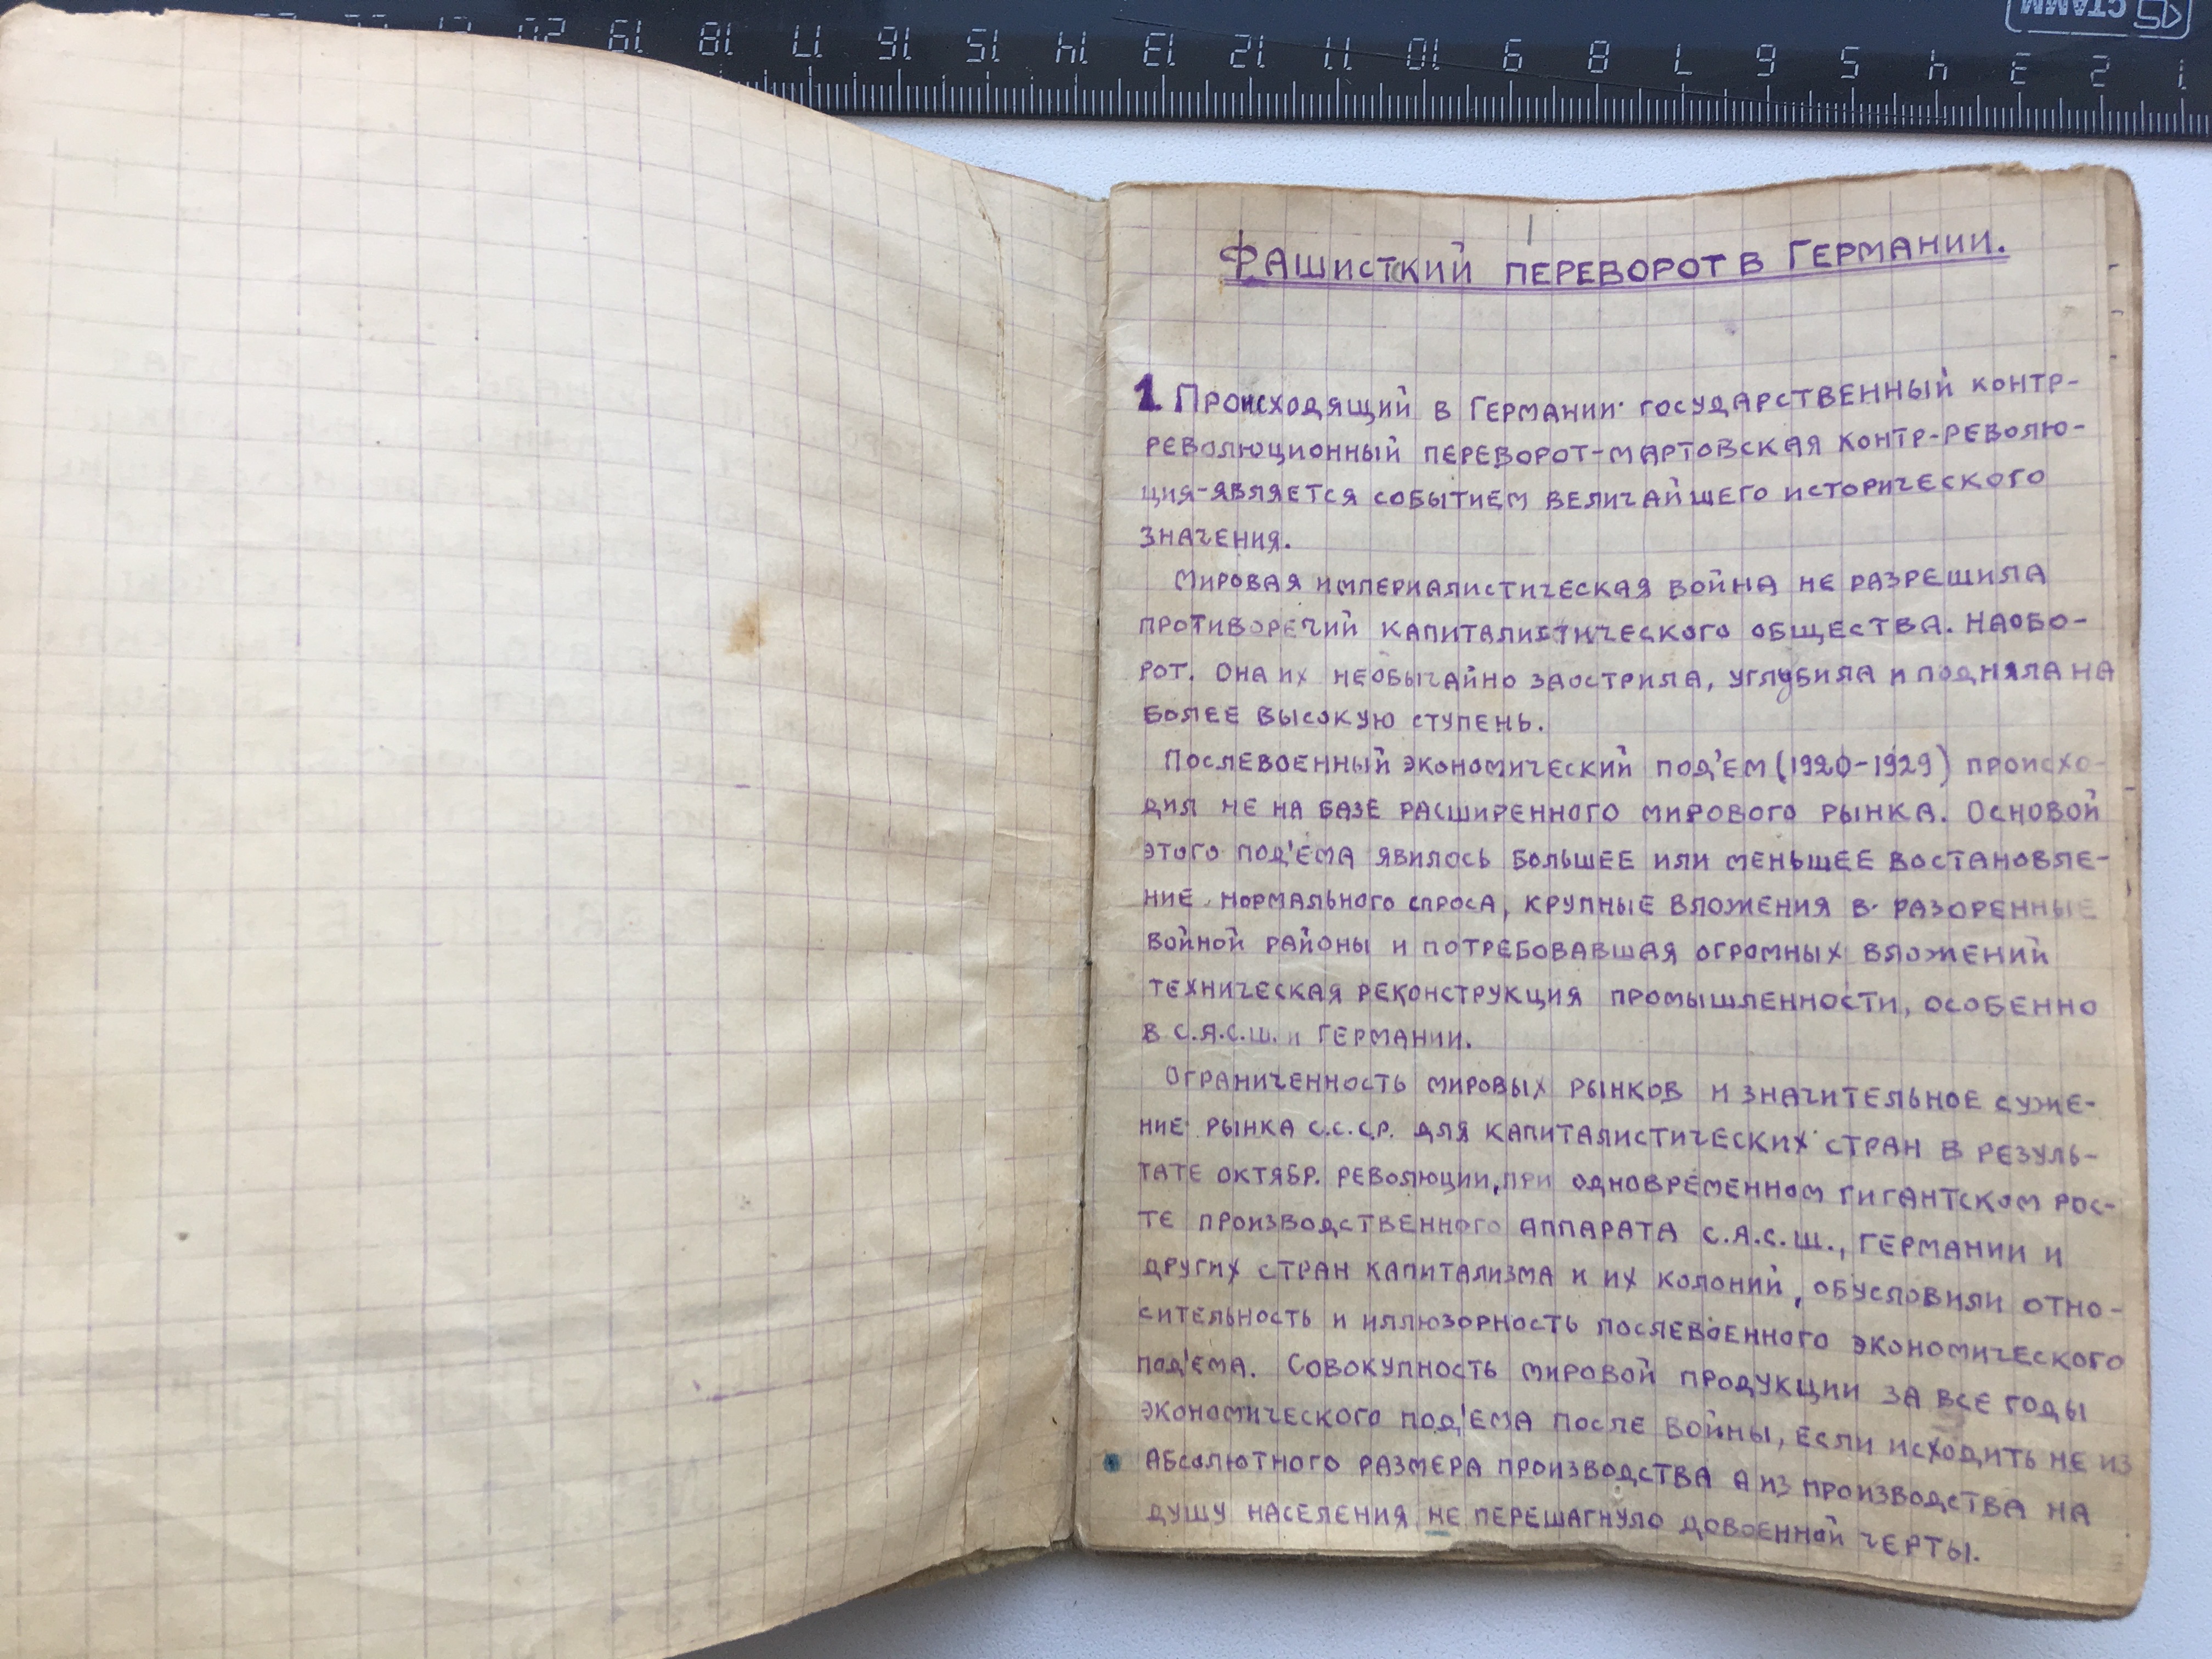 СТАММ
20 19 18 17 16 15 14 13 12 11 10 9 8 7 6 5 4 3 2 1
Фашисткий переворот в Германии.
1. Происходящий в Германии государственный контр-
революционный переворот-мартовская контр-револю-
ция-является событием величайшего исторического
значения.
Мировая империалистическая война не разрешила
противоречий капиталистического общества. Наобо-
рот. Она их необычайно заострила, углубила и подняла на
более высокую ступень.
Послевоенный экономический под'ем (1920-1929) происхо-
дил не на базе расширенного мирового рынка. Основой
этого под'ема явилось большее или меньшее востановле-
ние нормального спроса, крупные вложения в разоренные
войной районы и потребовавшая огромных вложений
техническая реконструкция промышленности, особенно
в С.А.С.Ш. и Германии.
Ограниченность мировых рынков и значительное суже-
ние рынка С.С.С.Р. для капиталистических стран в резуль-
тате октябр. революции, при одновременном гигантском рос-
те производственного аппарата С.А.С.Ш., Германии и
других стран капитализма и их колоний, обусловили отно-
сительность и иллюзорность послевоенного экономического
под'ема. Совокупность мировой продукции за все годы
экономического под'ема после войны, если исходить не из
абсолютного размера производства а из производства на
душу населения не перешагнуло довоенной черты.